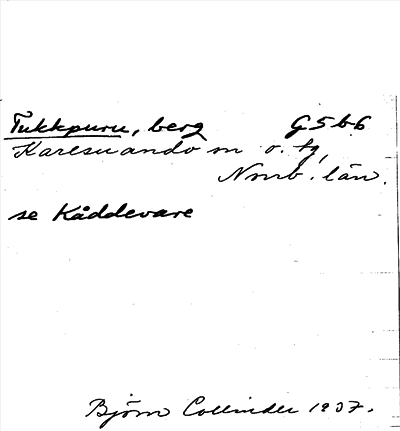 Tukkpuru, berg G5b6
Karesuando sn o. tg,
Nrrb. län.
se Kåddevare
Björn Collinder 1937.